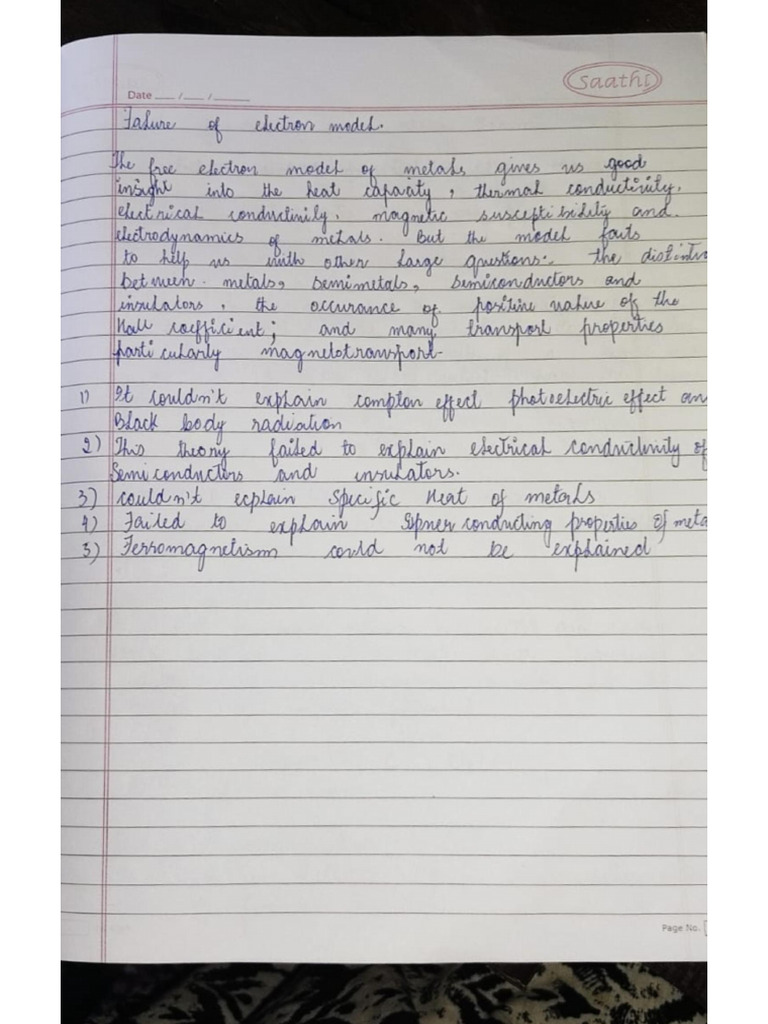 Saathi
Date __/__/____
Failure of electron model.
The free electron model of metals gives us good
insight into the heat capacity, thermal conductivity,
electrical conductivity. magnetic susceptibility and
electrodynamics of metals. But the model fails
to help us with other large questions. the distinctio
between metals, semimetals, semiconductors and
insulators, the occurance of positive nature of the
Hall coefficient; and many transport properties
particularly magnetotransport-
1) It couldn't explain compton effect photoelectric effect an
Black body radiation
2) This theory failed to explain electrical conductivity of
Semiconductors and insulators.
3) couldn't ecplain Specific Heat of metals
4) Failed to explain Superconducting properties of meta
5) Ferromagnetism could not be explained
Page No.